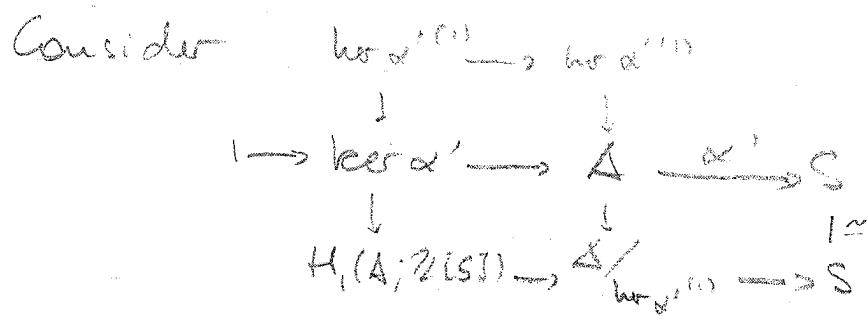 Consider ker α'⁽¹⁾ → ker α'⁽¹⁾
↓ ↓
1 → ker α' → A →α' S
↓ ↓ | ≃
H₁(A; ℤ[S]) → A/ker α'⁽¹⁾ → S